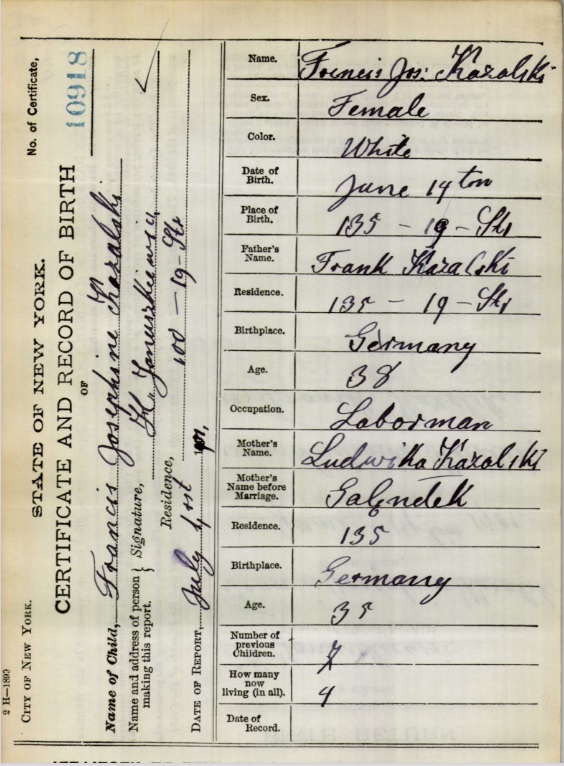 2 H—1890
CITY OF NEW YORK.
STATE OF NEW YORK.
CERTIFICATE AND RECORD OF BIRTH
OF
No. of Certificate,
10918
Name of Child, Francis Josephine Kazalski
Name and address of person making this report. } Signature, K. Januszkiewicz
Residence, 100 – 19 – Str
DATE OF REPORT, July 1st
Name. Francis Jos: Kazalski
Sex. Female
Color. White
Date of Birth. June
Place of Birth. 135 – 19 – Str
Father's Name. Frank Kazalski
Residence. 135 – 19 – Str
Birthplace. Germany
Age. 38
Occupation. Laborman
Mother's Name. Ludwika Kazalski
Mother's Name before Marriage. Galendek
Residence. 135
Birthplace. Germany
Age. 35
Number of previous Children. 7
How many now living (in all). 4
Date of Record.